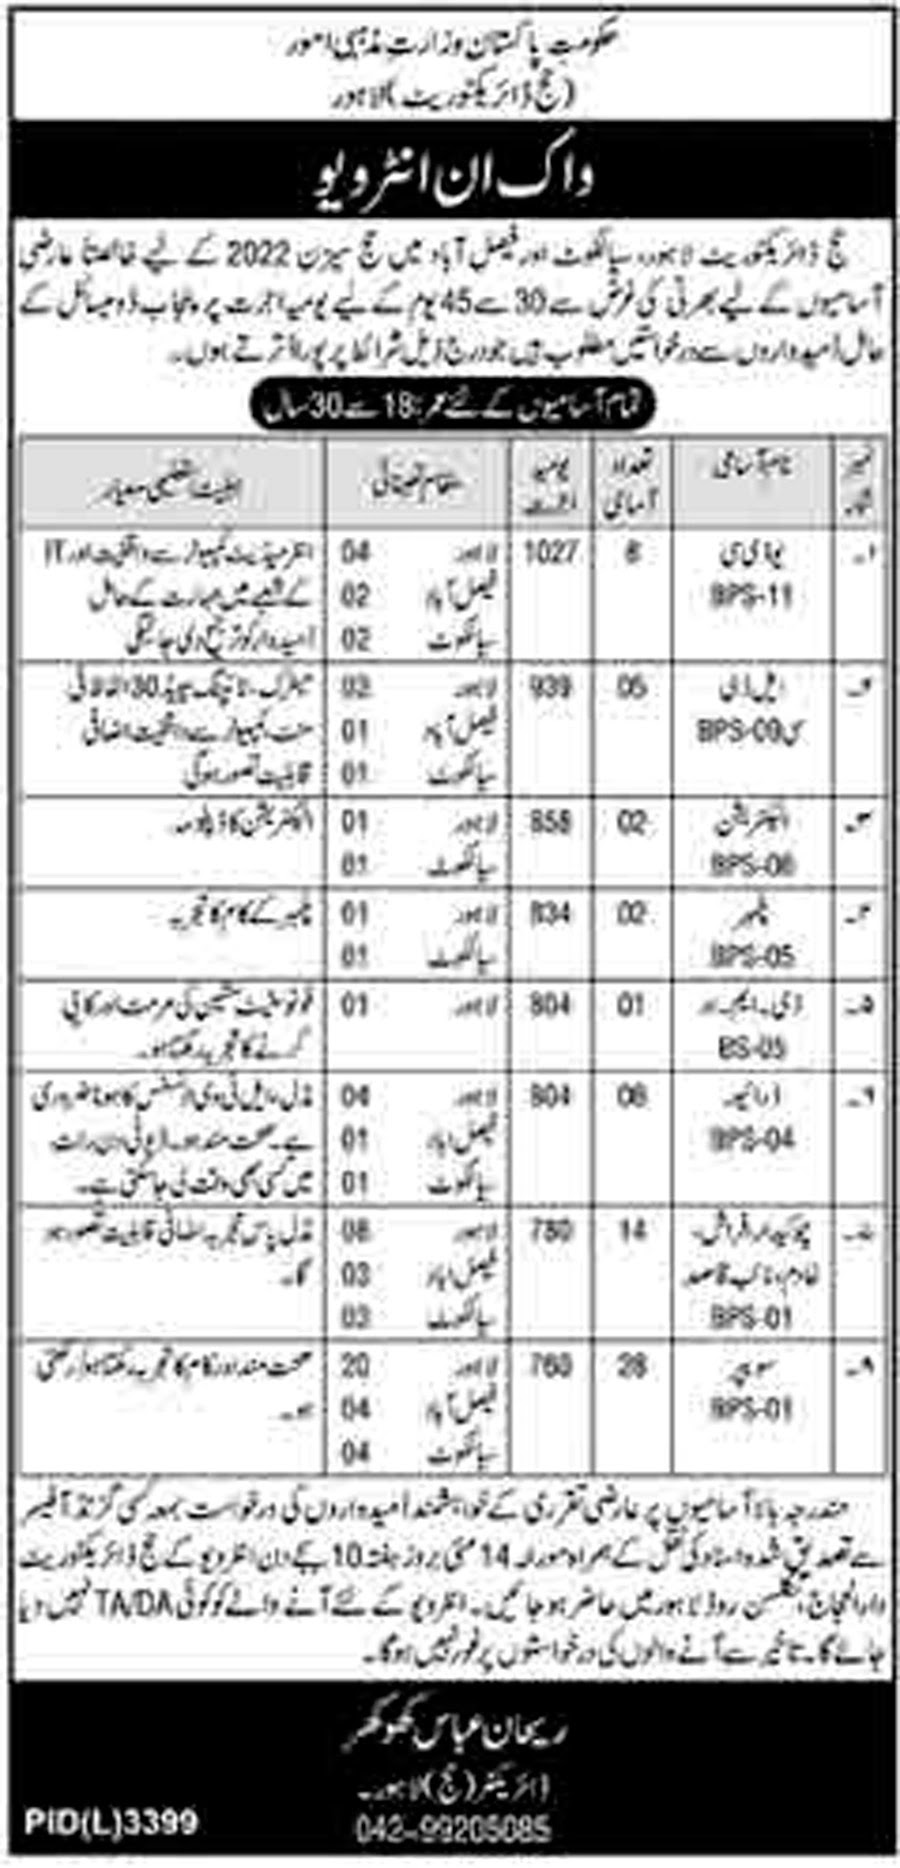 حکومتِ پاکستان وزارتِ مذہبی امور
(حج ڈائریکٹوریٹ) لاہور
واک ان انٹرویو
حج ڈائریکٹوریٹ لاہور، سیالکوٹ اور فیصل آباد میں حج سیزن 2022 کے لیے خالصتاً عارضی
آسامیوں کے لیے بھرتی کی غرض سے 30 سے 45 یوم کے لیے یومیہ اجرت پر پنجاب ڈومیسائل کے
حامل امیدواروں سے درخواستیں مطلوب ہیں جو درج ذیل شرائط پر پورا اترتے ہوں۔
تمام آسامیوں کے لئے عمر: 18 سے 30 سال
نمبر شمار | نام آسامی | تعداد آسامی | یومیہ اجرت | مقام تعیناتی | اہلیت / تعلیمی معیار
۱۔ یو ڈی سی 8 1027 لاہور 04 انٹرمیڈیٹ کمپیوٹر سے واقفیت اور IT
BPS-11 فیصل آباد 02 کے شعبے میں مہارت کے حامل
سیالکوٹ 02 امیدوار کو ترجیح دی جائیگی
۲۔ ایل ڈی 05 939 لاہور 03 میٹرک، ٹائپنگ سپیڈ 30 الفاظ فی
سی BPS-09 فیصل آباد 01 منٹ، کمپیوٹر سے واقفیت اضافی
سیالکوٹ 01 قابلیت تصور ہوگی
۳۔ الیکٹریشن 02 858 لاہور 01 الیکٹریشن کا ڈپلومہ
BPS-06 سیالکوٹ 01
۴۔ پلمبر 02 834 لاہور 01 پلمبر کے کام کا تجربہ
BPS-05 سیالکوٹ 01
۵۔ ڈی۔ایم۔او 01 804 لاہور 01 فوٹو سٹیٹ مشین کی مرمت اور کاپی
BS-05 کرنے کا تجربہ رکھتا ہو۔
۶۔ ڈرائیور 06 804 لاہور 04 مڈل، ایل ٹی وی لائسنس کا ہونا ضروری
BPS-04 فیصل آباد 01 ہے۔ صحت مند ہو۔ ڈیوٹی دن رات
سیالکوٹ 01 میں کسی بھی وقت لی جا سکتی ہے۔
چوکیدار، فراش، 14 780 لاہور 08 مڈل پاس تجربہ اضافی قابلیت تصور ہو
خادم، نائب قاصد فیصل آباد 03 گا۔
BPS-01 سیالکوٹ 03
سویپر 28 760 لاہور 20 صحت مند اور کام کا تجربہ رکھتا ہو / رکھتی
BPS-01 فیصل آباد 04 ہو۔
سیالکوٹ 04
مندرجہ بالا آسامیوں پر عارضی تقرری کے خواہشمند امیدواروں کی درخواست بمعہ کسی گزٹڈ آفیسر
سے تصدیق شدہ اسناد کی نقل کے ہمراہ مورخہ 14 مئی بروز ہفتہ 10 بجے دن انٹرویو کے حج ڈائریکٹوریٹ
دارالحجاج، نکلسن روڈ لاہور میں حاضر ہو جائیں۔ انٹرویو کے لئے آنے والے کو کوئی TA/DA نہیں دیا
جائے گا۔ تاخیر سے آنے والوں کی درخواستوں پر غور نہیں ہوگا۔
ریحان عباس کھوکھر
ڈائریکٹر (حج) لاہور۔
042-99205085
PID(L)3399